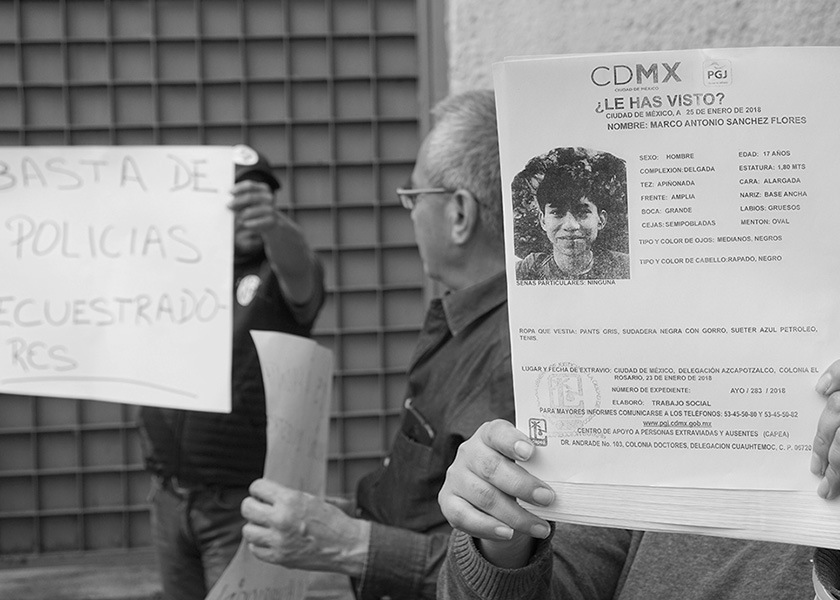 BASTA DE
POLICIAS
ECUESTRADO-
RES
CDMX
CIUDAD DE MÉXICO
PGJ
¿LE HAS VISTO?
CIUDAD DE MÉXICO, A 25 DE ENERO DE 2018
NOMBRE: MARCO ANTONIO SANCHEZ FLORES
SEXO: HOMBRE EDAD: 17 AÑOS
COMPLEXION: DELGADA ESTATURA: 1,80 MTS
TEZ: APIÑONADA CARA: ALARGADA
FRENTE: AMPLIA NARIZ: BASE ANCHA
BOCA: GRANDE LABIOS: GRUESOS
CEJAS: SEMIPOBLADAS MENTON: OVAL
TIPO Y COLOR DE OJOS: MEDIANOS, NEGROS
TIPO Y COLOR DE CABELLO: RAPADO, NEGRO
SEÑAS PARTICULARES: NINGUNA
ROPA QUE VESTIA: PANTS GRIS, SUDADERA NEGRA CON GORRO, SUETER AZUL PETROLEO,
TENIS.
LUGAR Y FECHA DE EXTRAVIO: CIUDAD DE MÉXICO, DELEGACIÓN AZCAPOTZALCO, COLONIA EL
ROSARIO, 23 DE ENERO DE 2018
NÚMERO DE EXPEDIENTE: AYO / 283 / 2018
ELABORÓ: TRABAJO SOCIAL
PARA MAYORES INFORMES COMUNICARSE A LOS TELÉFONOS: 53-45-50-80 Y 53-45-50-82
www.pgj.cdmx.gob.mx
CENTRO DE APOYO A PERSONAS EXTRAVIADAS Y AUSENTES (CAPEA)
DR. ANDRADE No. 103, COLONIA DOCTORES, DELEGACION CUAUHTEMOC, C. P. 06720